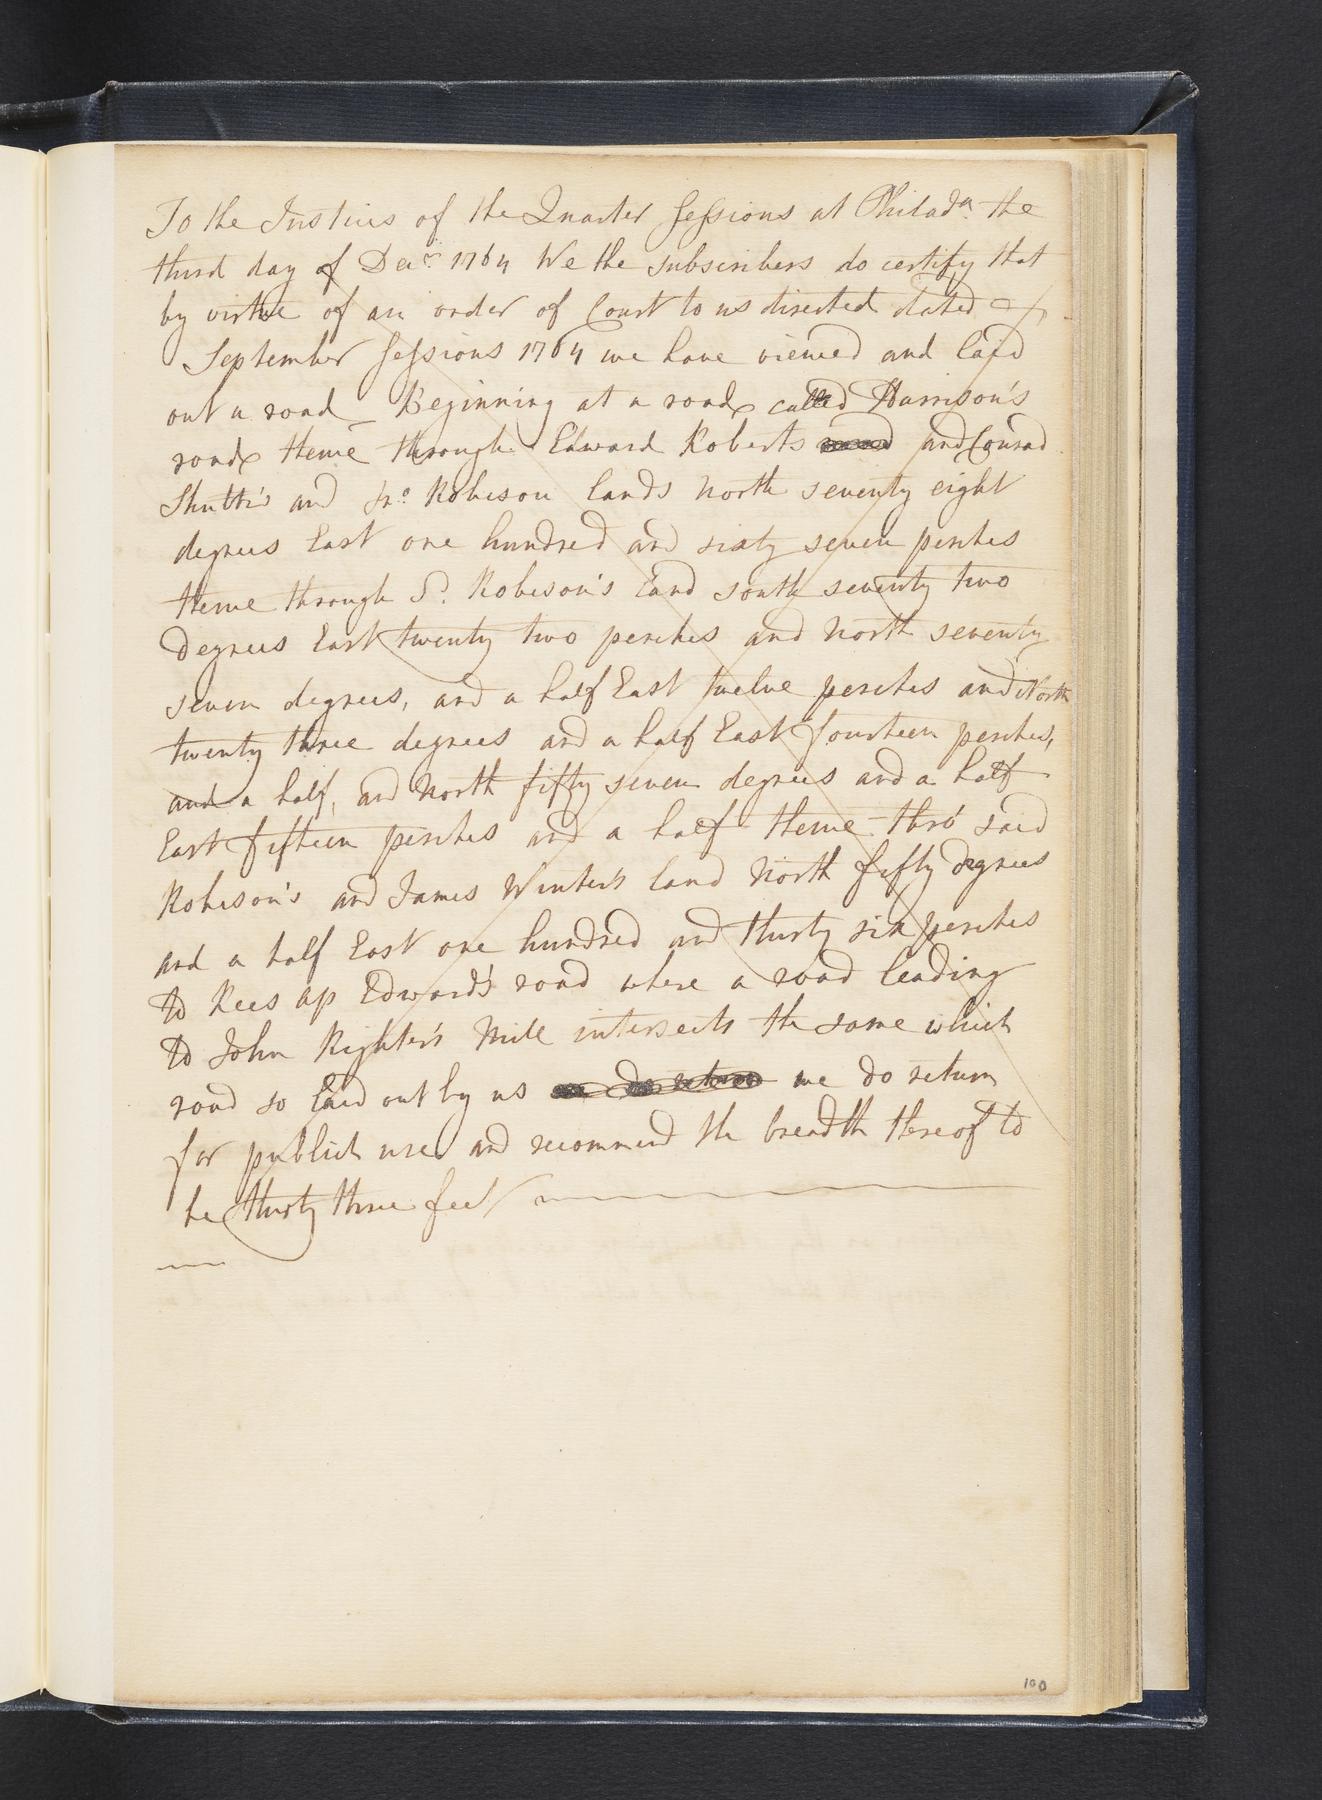 To the Justices of the Quarter Sessions at Philada. the
third day of Decr. 1764 We the subscribers do certify that
by virtue of an order of Court to us directed dated
September Sessions 1764 we have viewed and laid
out a road Beginning at a road called Harrison's
road thence through Edward Roberts and Conrad
Shutt's and Jno. Robeson lands North seventy eight
degrees East one hundred and sixty seven perches
thence through Sd. Robeson's land south seventy two
Degrees East twenty two perches and North seventy
seven degrees, and a half East twelve perches and North
twenty three degrees and a half East fourteen perches,
and a half, and North fifty seven degrees and a half
East fifteen perches and a half thence thro' said
Robeson's and James Winter's land North fifty degrees
and a half East one hundred and thirty six perches
to Rees ap Edward's road where a road leading
to John Righter's Mill intersects the same which
road so laid out by us do return we do return
for publick use and recommend the breadth thereof to
be thirty three feet
100